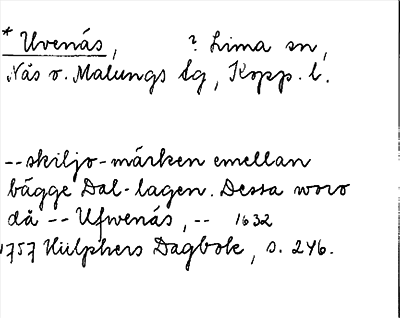 * Uvenäs, ? Lima sn,
Nås o. Malungs tg, Kopp. l.
-- skiljo-märken emellan
bägge Dal-lagen. Dessa woro
då -- Ufwenäs, -- 1632
1757 Hülphers Dagbok, s. 246.